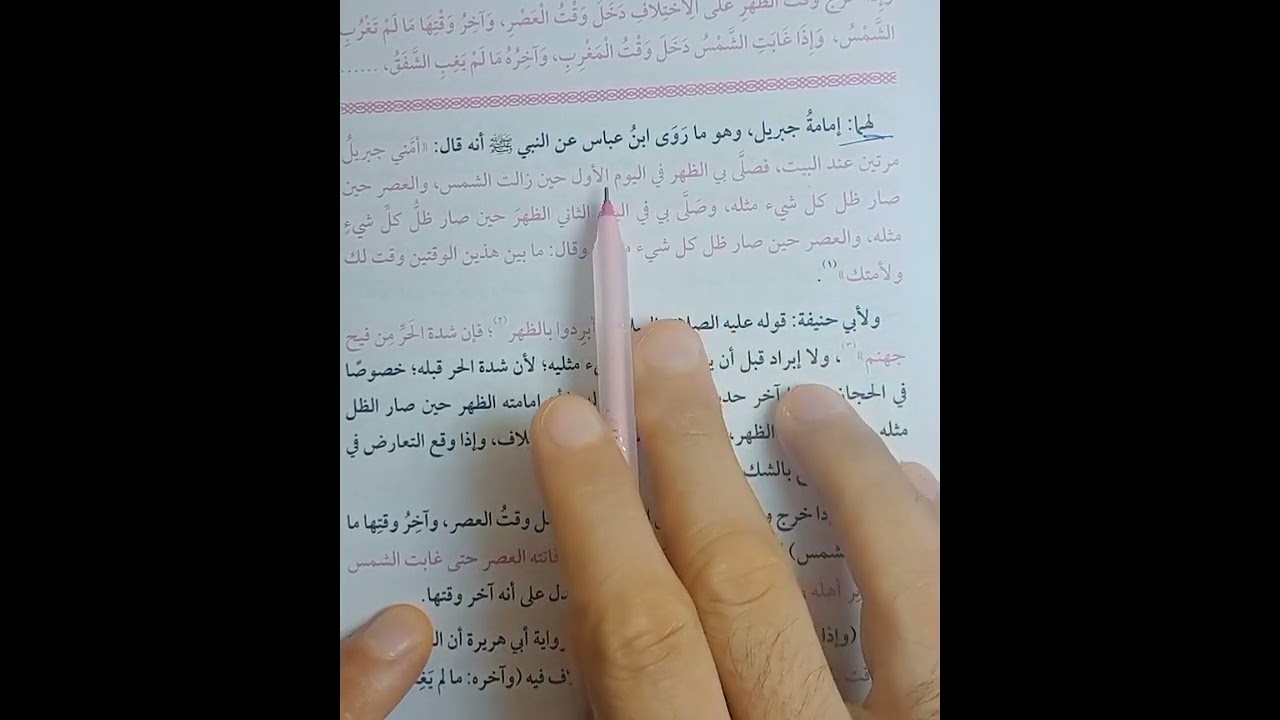 وإذا خرج وقت الظهر على الاختلاف دَخَلَ وَقْتُ الْعَصْرِ، وَآخِرُ وَقْتِهَا مَا لَمْ تَغْرُبِ
الشَّمْسُ، وَإِذَا غَابَتِ الشَّمْسُ دَخَلَ وَقْتُ الْمَغْرِبِ، وَآخِرُهُ مَا لَمْ يَغِبِ الشَّفَقُ، ......
لهما: إمامةُ جبريل، وهو ما رَوَى ابنُ عباس عن النبي ﷺ أنه قال: «أمَّني جبريلُ
مرتين عند البيت، فصلَّى بي الظهر في اليوم الأول حين زالت الشمس، والعصر حين
صار ظل كل شيء مثله، وصَلَّى بي في الثاني الظهرَ حين صار ظلُّ كلِّ شيءٍ
مثله، والعصر حين صار ظل كل شيء وقال: ما بين هذين الوقتين وقت لك
ولأمتك»(١).
ولأبي حنيفة: قوله عليه الصلاة أبرِدوا بالظهر(٢)؛ فإن شدة الحَرِّ مِن فيح
جهنم»(٣)، ولا إبراد قبل أن مثليه؛ لأن شدة الحر قبله؛ خصوصًا
في الحجاز آخر إمامته الظهر حين صار الظل
مثله الظهر، وإذا وقع التعارض في
بالشك
خرج وقتُ العصر، وآخِرُ وقتِها ما
الشمس) فاتته العصر حتى غابت الشمس
أهلَه دل على أنه آخر وقتها.
(وإذا رواية أبي هريرة أن
فيه (وآخره: ما لم